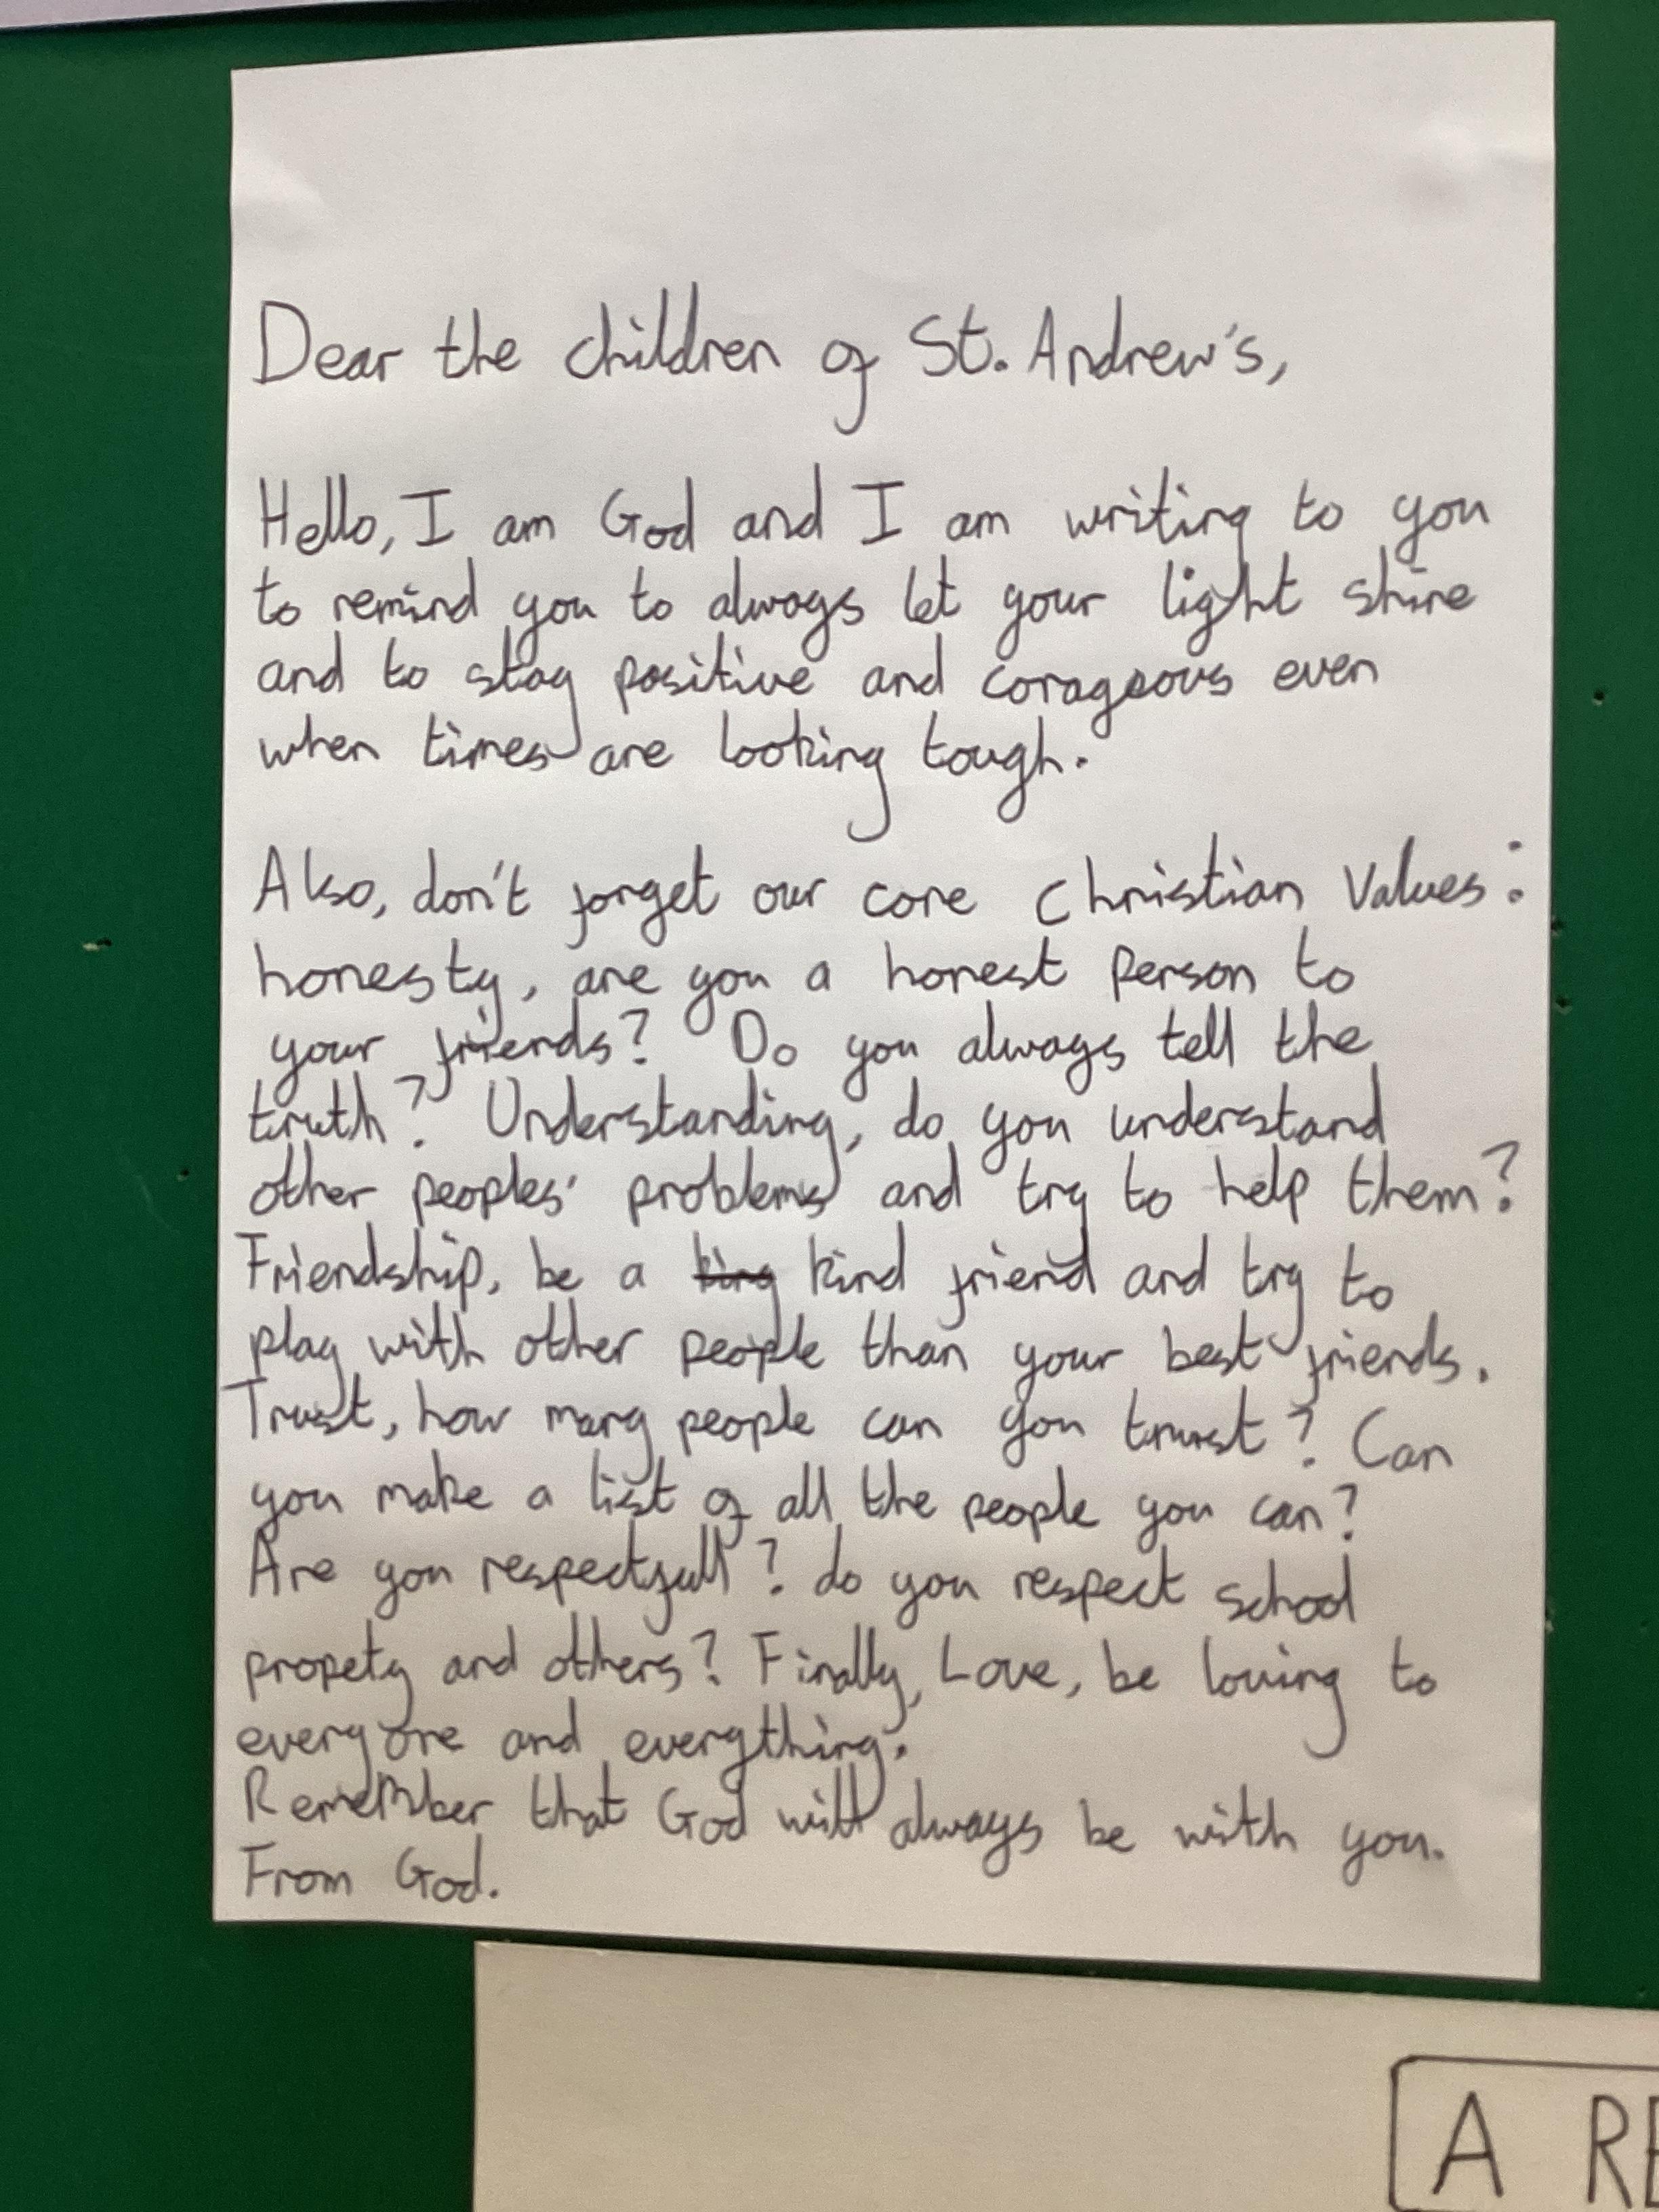 Dear the children of St. Andrew's,
Hello, I am God and I am writing to you
to remind you to always let your light shine
and to stay positive and corageous even
when times are looking tough.
Also, don't forget our core Christian Values:
honesty, are you a honest person to
your friends? Do you always tell the
truth? Understanding, do you understand
other peoples' problems and try to help them?
Friendship, be a king kind friend and try to
play with other people than your best friends.
Trust, how many people can you trust? Can
you make a list of all the people you can?
Are you respectfull? do you respect school
propety and others? Finally, Love, be loving to
everyone and everything.
Remember that God will always be with you.
From God.
A RE